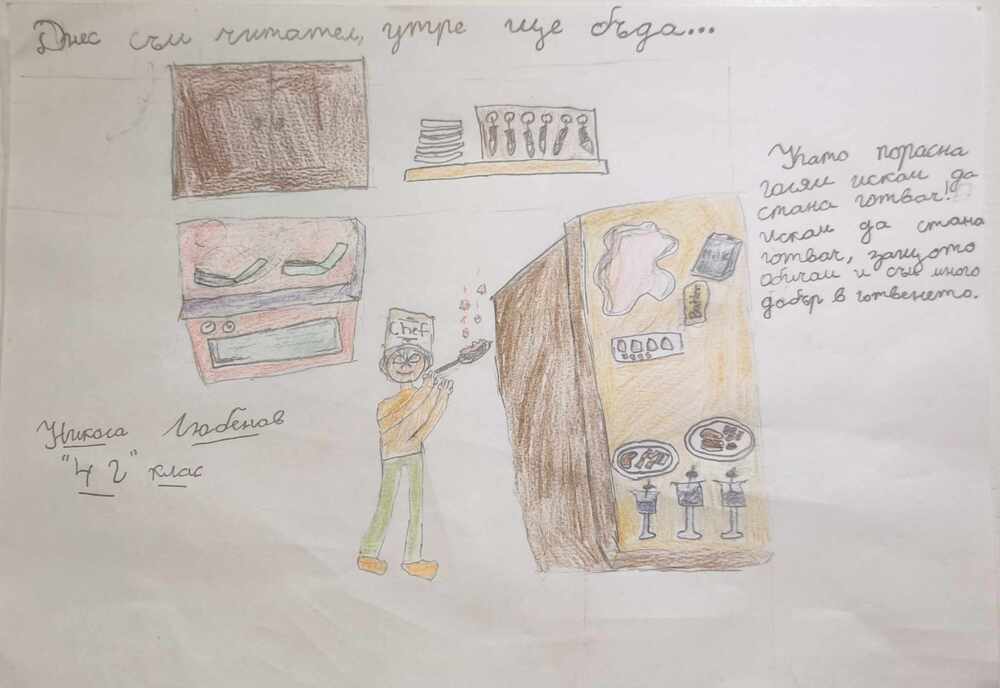 Днес съм читател, утре ще бъда...
Като порасна
голям искам да
стана готвач!
Искам да стана
готвач, защото
обичам и съм много
добър в готвенето.
Milk
Butter
Chef
Никола Любенов
"4 г" клас